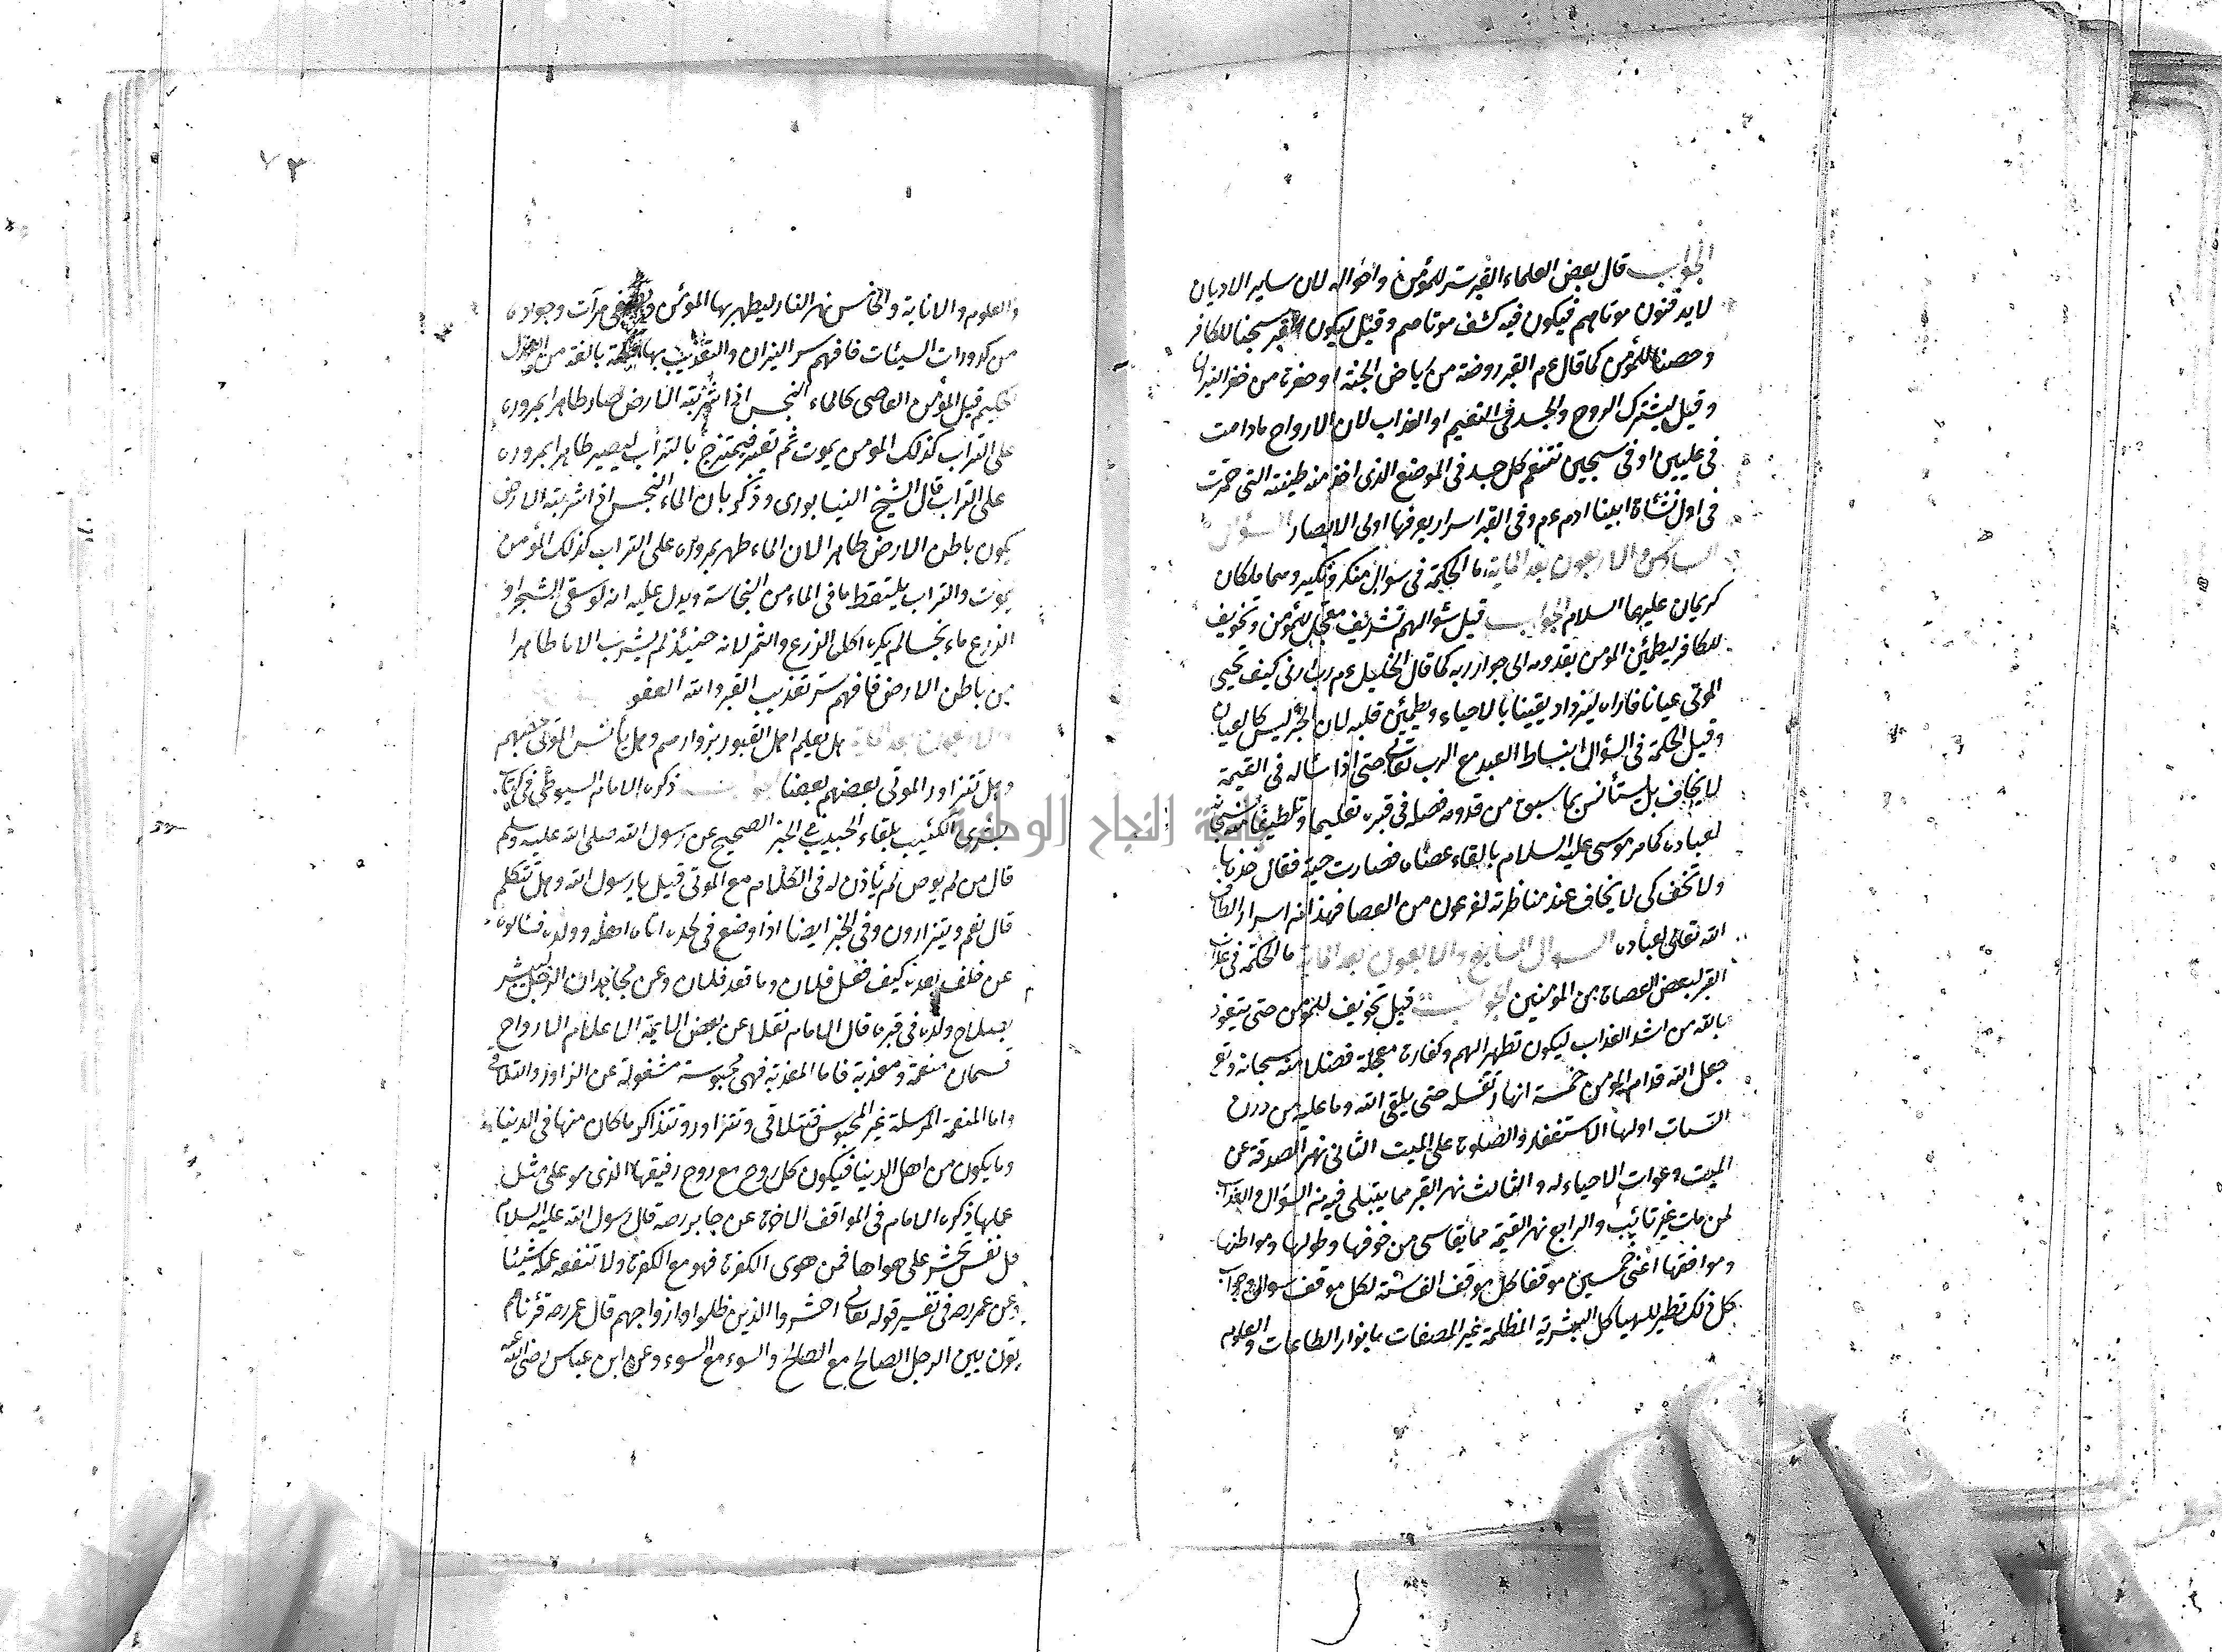 الجواب قال بعض العلماء القبر ستر للمؤمن واخواله لان ساير الاديان
لا يدفنون موتاهم فيكون فيه كشف موتاهم وقيل ليكون القبر سجنا للكافر
وحصنا للمؤمن كما قال ءم القبر روضة من رياض الجنة او حفرة من حفر النيران
وقيل ليشترك الروح والجسد فى النعيم او العذاب لان الارواح مادامت
فى عليين او فى سجين تتنعم كل جسد فى الموضع الذى اخذ منه طينته التى خمرت
فى اول نشأة ابينا ادم ءم وفى القبر اسرار يعرفها اولى الابصار السؤال
السادس والاربعون بعد المائة ما الحكمة فى سؤال منكر ونكير وهما ملكان
كريمان عليهما السلام الجواب قيل سؤالهم تشريف معجل للمؤمن وتخويف
للكافر ليطمئن المومن بقدومه الى جوار ربه كما قال الخليل ءم رب ارنى كيف تحيى
الموتى عيانا فاراه ليزداد يقينا بالاحياء ويطمئن قلبه لان الخبر ليس كالعيان
وقيل الحكمة فى السؤال انبساط العبد مع الرب تعالى حتى اذا سأله فى القيمة
لا يخاف بل يستأنس بما سبق من قدومه فصله فى قبره تعليما وتلطيفا منه سبحانه
لعباده كما مر موسى عليه السلام بالقاء عصاه فصارت حية فقال خذها
ولا تخف كى لا يخاف عند مناظرته لفرعون من العصا فهذا منه اسرار الطاف
الله تعالى لعباده السوال السابع والاربعون بعد المائة ما الحكمة فى عذاب
القبر لبعض العصاة من المومنين الجواب قيل تخويف للمؤمن حتى يتعوذ
بالله من اشد العذاب ليكون تطهيرا لهم وكفارة معجلة فضلا منه سبحانه وتع
جعل الله قدام المومن خمسة انهار تغسله حتى يلقى الله وما عليه من درن
السيات اولها الاستغفار والصلوة على الميت الثانى نهر الصدقة عن
الميت ودعوات الاحياء له والثالث نهر القبر مما يبتلى فيه من السؤال والعذاب
لمن مات غير تائب والرابع نهر القيمة مما يقاسى من خوفها وطولها ومواطنها
ومواقفها اعنى خمسين موقفا كل موقف الف سنة لكل موقف سوال وجواب
كل ذلك تطهير للهياكل البشرية المظلمة غير المصفات بانوار الطاعات والعلوم
٧٣
والعلوم والانابة والخامس نهر النار ليطهر بها المؤمن ويصفى مرآت وجوده
من كدورات السيئات فافهم سر النيران والتعذيب بها حكمة بالغة من العدل
الحكيم قيل المؤمن العاصى كالماء النجس اذا شربته الارض صار طاهرا بمروره
على التراب كذلك المومن يموت ثم تعذر فيمتزج بالتراب ليصير طاهرا بمروره
على التراب قال الشيخ النيسابورى وذكر بان الماء النجس اذا شربته الارض
يكون باطن الارض طاهرا لان الماء طهر بمروره على التراب كذلك المؤمن
يموت والتراب يلتقط ما فى الماء من النجاسة ويدل عليه انه لو سقى الشجر او
الزرع ماء نجسا لم يكره اكل الزرع والثمر لانه حينئذ لم يشرب الا ما طاهرا
من باطن الارض فافهم سر تعذيب القبر والله العفو
والاربعون بعد المائة هل يعلم اهل القبور بزوارهم وهل يأنس الموتى بعضهم
وهل تتزاور الموتى بعضهم بعضا الجواب ذكره الامام السيوطى فى كتاب
بشرى الكئيب بلقاء الحبيب فى الخبر الصحيح عن رسول الله صلى الله عليه وسلم
قال من لم يوص لم يأذن له فى الكلام مع الموتى قيل يا رسول الله وهل تتكلم
قال نعم ويتزارون وفى الخبر ايضا اذا وضع فى لحده اتاه اهله وولده فسالوه
عن خلف بعده كيف فعل فلان وما فعد فلان وعن مجاهد ان الرجل ليبشر
بصلاح ولده فى قبره قال الامام نقلا عن بعض الايمة الاعلام الارواح
قسمان منعمة ومعذبة فاما المعذبة فهى محبوسة مشغولة عن التزاور والتلاقى
واما المنعمة المرسلة غير المحبوس فتتلاقى وتتزاور وتتذاكر ما كان منها فى الدنيا
وما يكون من اهل الدنيا فيكون كل روح مع روح رفيقها الذى هو على مثل
عملها ذكره الامام فى المواقف الاخرة عن جابر رصه قال رسول الله عليه السلام
كل نفس تحشر على هواها فمن هوى الكفرة فهو مع الكفرة ولا تنفعه عمله شيئا
وعن عمر رصه فى تفسير قوله تعالى احشروا الذين ظلموا وازواجهم قال عمر رصه قرناهم
يقرن بين الرجل الصالح مع الصالح والسوء مع السوء وعن ابن عباس رضى الله عنه
جامعة النجاح الوطنية